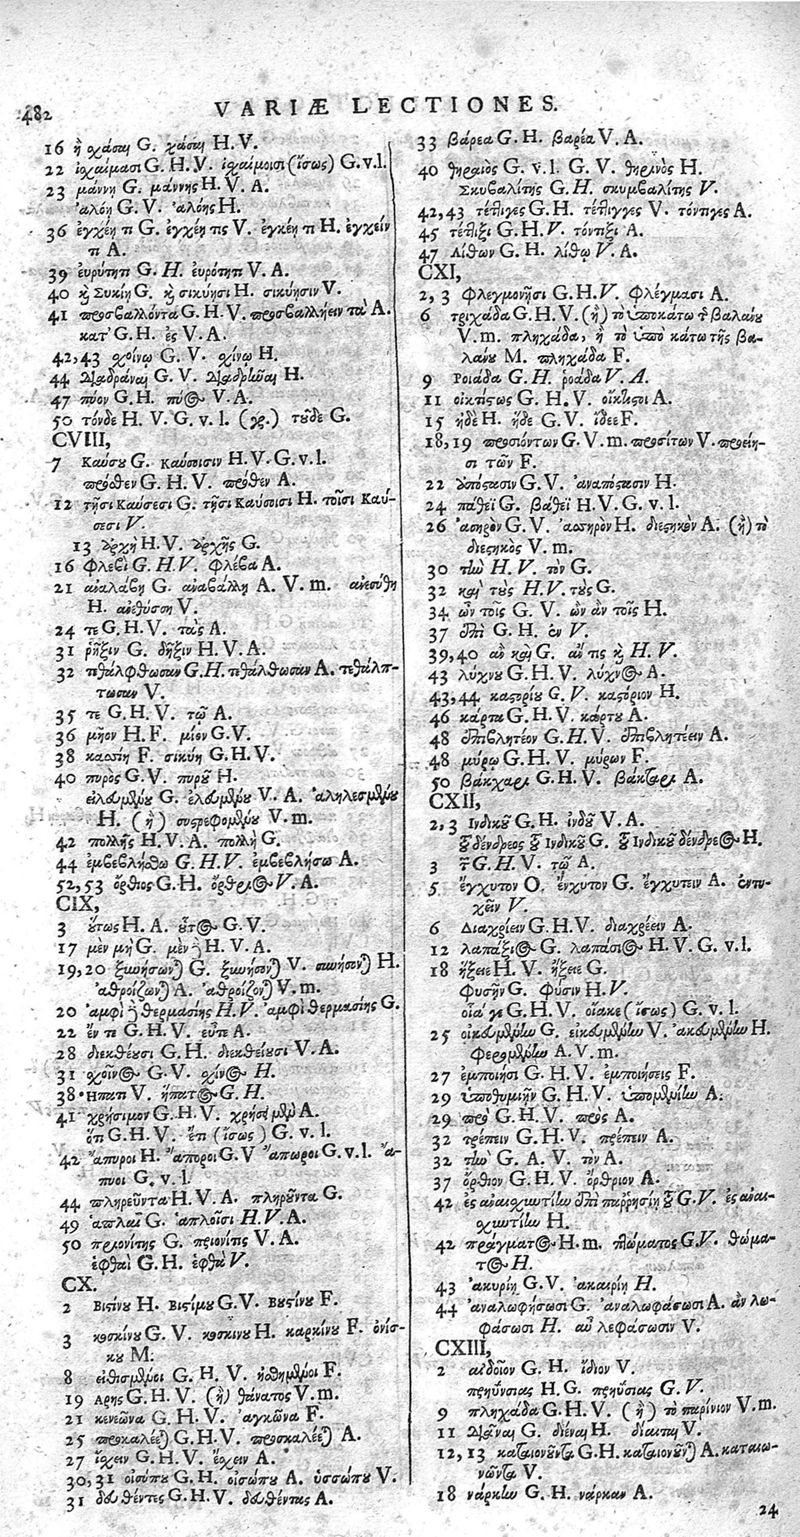 482
VARIÆ LECTIONES.
16 ἢ σχάσαι G. χάσαι H. V.
22 ἰσχαίμασι G. H. V. ἰσχαίμοισι (ἴσως) G. v. l.
23 μάννη G. μάννης H. V. A.
ἀλόη G. V. ἀλόης H.
36 ἐγχέῃ τι G. ἐγχέῃ τις V. ἐγκέῃ τι H. ἐγχεῖν
τι A.
39 εὐρύτητι G. H. εὐρότητι V. A.
40 ἢ Συκίη G. ἢ σικύησι H. σικύησιν V.
41 προσβαλλόντα G. H. V. προσβαλλήειν τὰ A.
κατ' G. H. ἐς V. A.
42,43 σχοίνῳ G. V. σχίνῳ H.
44 Διαδράναι G. V. Διαδρῆναι H.
47 πύον G. H. πύος V. A.
50 τόνδε H. V. G. v. l. (γρ.) τοῦδε G.
CVIII,
7 Καύσου G. καύσοισιν H. V. G. v. l.
πρόσθεν G. H. V. πρόσθεν A.
12 τῇσι Καύσεσι G. τῇσι Καύσοισι H. τοῖσι Καύ-
σεσι V.
13 ἀρχὴ H. V. ἀρχῆς G.
16 φλεβὶ G. H. V. φλέβα A.
21 ἀναλάβῃ G. ἀναβάλλῃ A. V. m.
H. V.
24 τε G. H. V. τὰς A.
31 ῥῆξιν G. δῆξιν H. V. A.
32 τεθάλφθωσαν G. H. τεθάλθωσαν A. τεθάλπ-
τωσαν V.
35 τε G. H. V. τῷ A.
36 μῆον H. F. μίον G. V.
38 F. σικύη G. H. V.
40 πυρὸς G. V. πυροῦ H.
G. V. A.
H. (ἢ) συστρεφομένου V. m.
42 πολλῆς H. V. A. πολλὴ G.
44 ἐμβεβλήσθω G. H. V. ἐμβεβλήσω A.
52,53 ὄρθιος G. H. ὄρθριος V. A.
CIX,
3 οὕτως H. A. οὗτος G. V.
17 μὲν μὴ G. μὲν H. V. A.
19,20 G. V. H.
A. V. m.
20 ἀμφὶ θερμασίης H. V. ἀμφιθερμασίης G.
22 ἔν τε G. H. V. εὖτε A.
28 διεκθέουσι G. H. διεκθείουσι V. A.
31 σχοῖνος G. V. σχίνος H.
38 Ἥπατι V. ἥπατος G. H.
41 χρήσιμον G. H. V. χρήσιμοι A.
ὅτι G. H. V. ἔτι (ἴσως) G. v. l.
42 ἄπυροι H. ἄποροι G. V ἄπωροι G. v. l. ἄ-
πυοι G. v. l.
44 πληρεῦντα H. V. A. πληροῦντα G.
49 G. ἁπλοῖσι H. V. A.
50 πριονίτης G. πριονίτις V. A.
ἑφθαὶ G. H. ἑφθὰ V.
CX.
2 Βιτίνου H. Βιτίμου G. V. Βυτίνου F.
3 κοσκίνου G. V. κοσκίνου H. καρκίνου F. ὀνίσ-
κου M.
8 εἰθισμένοι G. H. V. F.
19 Αρης G. H. V. (ἢ) θάνατος V. m.
21 κενεῶνα G. H. V. ἀγκῶνα F.
25 προκαλέεται G. H. V. προσκαλέεται A.
27 ἴσχειν G. H. V. ἔσχειν A.
30,31 οἰσύπου G. H. οἰσώπου A. ὑσσώπου V.
31 δεθέντες G. H. V. δεθέντας A.
33 βάρεα G. H. βαρέα V. A.
40 θηραιὸς G. v. l. G. V. θηρινὸς H.
Σκυβαλίτης G. H. σκυμβαλίτης V.
42,43 τέτλιγες G. H. τέτλιγγες V. τόντιγες A.
45 τέτλιξι G. H. V. τόντιξι A.
47 Λίθων G. H. λίθῳ V. A.
CXI,
2, 3 Φλεγμονῇσι G. H. V. φλέγμασι A.
6 τριχάδα G. H. V. (ἢ) τὸ ὑποκάτω τοῦ βαλάνου
V. m. πληχάδα, ἢ τὸ ὑποκάτω τῆς βα-
λάνου M. πληχάδα F.
9 Ροιάδα G. H. ῥοάδα V. A.
11 οἰκτίστως G. H. V. οἴκιστοι A.
15 ἠδὲ H. ἥδε G. V. ἴδεε F.
18,19 προσιόντων G. V. m. προσίτων V.
σι τῶν F.
22 ἀπόστασιν G. V. ἀναπόστασιν H.
24 πάθεϊ G. βάθεϊ H. V. G. v. l.
26 ἀσηρὸν G. V. H. διεστηκὸν A. (ἢ) τὸ
διεστηκὸς V. m.
30 τὴν H. V. τὸν G.
32 καὶ τοὺς H. V. τοὺς G.
34 ὧν τοῖς G. V. ὧν ἂν τοῖς H.
37 ἐπὶ G. H. ἐν V.
39,40 ἂν καὶ G. ἄν τις καὶ H. V.
43 λύχνου G. H. V. λύχνος A.
43,44 καστορίου G. V. καστόριον H.
46 κάρτα G. H. V. κάρτου A.
48 ἐπιβλητέον G. H. V. ἐπιβλητέειν A.
48 μύρῳ G. H. V. μύρων F.
50 βάκχαρι G. H. V. A.
CXII,
2,3 Ινδικοῦ G. H. ἰνδοῦ V. A.
τοῦ δένδρεος τοῦ Ινδικοῦ G. τοῦ Ινδικοῦ δένδρεος H.
3 G. H. V. τῷ A.
5 ἔγχυτον O. ἔνχυτον G. ἔγχυτειν A. ἐντυ-
χεῖν V.
6 Διαχρίειν G. H. V. διαχρέειν A.
12 λαπάξιος G. λαπάσιος H. V. G. v. l.
18 ἥξειε H. V. ἥξειε G.
φυσῆν G. φύσιν H. V.
οἷά γε G. H. V. οἴακε (ἴσως) G. v. l.
25 G. V. H.
A. V. m.
27 ἐμποιήσῃ G. H. V. ἐμποιήσεις F.
29 ὑποθυμιῆν G. H. V. A.
29 πρὸ G. H. V. πρὸς A.
32 τρέπειν G. H. V. πρέπειν A.
32 τὴν G. A. V. τὸν A.
37 ὄρθιον G. H. V. ὄρθριον A.
42 ἐς ἀναισχυντίην ἐπὶ παρρησίῃ τοῦ G. V. ἐς ἀναι-
σχυντίην H.
42 πράγματος H. m. πλώματος G. V. θώμα-
τος H.
43 ἀκυρίη G. V. ἀκαιρίη H.
44 ἀναλωφήσωσι G. ἀναλωφάσωσι A. ἂν λω-
φάσωσι H. λεφάσωσιν V.
CXIII,
2 αἰδοῖον G. H. ἴδιον V.
πρηΰνσιας H. G. πρηΰσιας G. V.
9 πληχάδα G. H. V. (ἢ) τὸ περίνιον V. m.
11 Διαναι G. διέναι H. δίαιται V.
12,13 G. H. A. καταιω-
V.
18 νάρκην G. H. νάρκαν A.
24